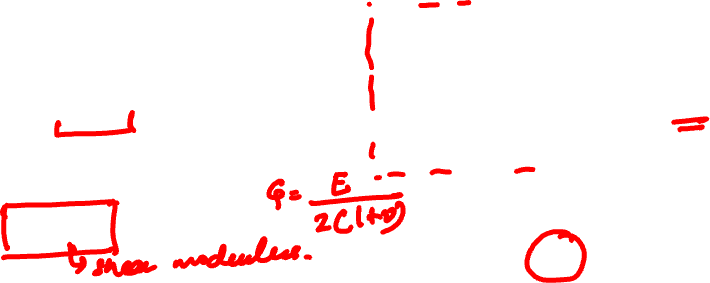 G = E / 2(1+ν)
shear modulus.